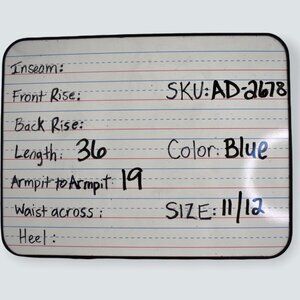 Inseam:
Front Rise:
SKU: AD-2678
Back Rise:
Length: 36
Color: Blue
Armpit to Armpit: 19
Waist across:
SIZE: 11/12
Heel: